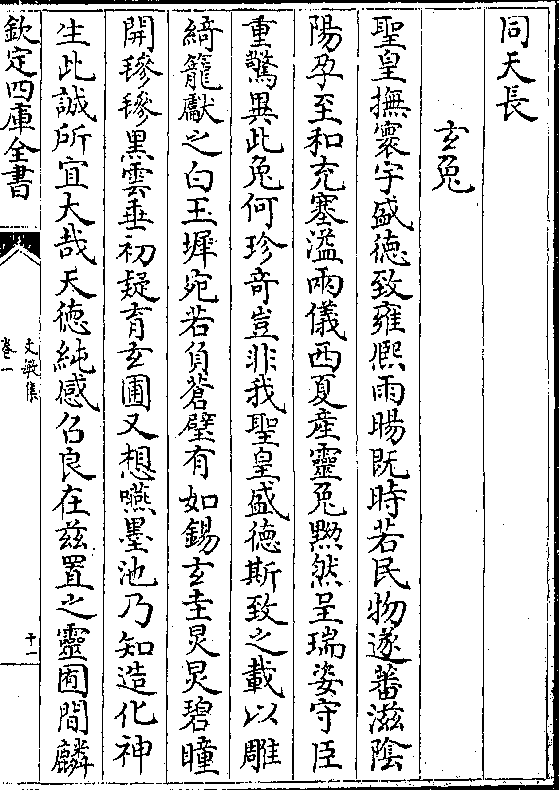 同天長
玄兔
聖皇撫寰宇盛德致雍熈雨暘既時若民物遂蕃滋陰
陽孕至和充塞溢兩儀西夏産靈兔黝然呈瑞姿守臣
重驚異此兔何珍竒豈非我聖皇盛德斯致之載以雕
綺籠獻之白玉墀宛若負蒼璧有如錫玄圭炅炅碧瞳
開㲯㲯黒雲垂初疑育玄圃又想嚥墨池乃知造化神
生此誠所宜大哉天徳純感召良在兹置之靈囿間麟
欽定四庫全書
文敏集
卷一
十一